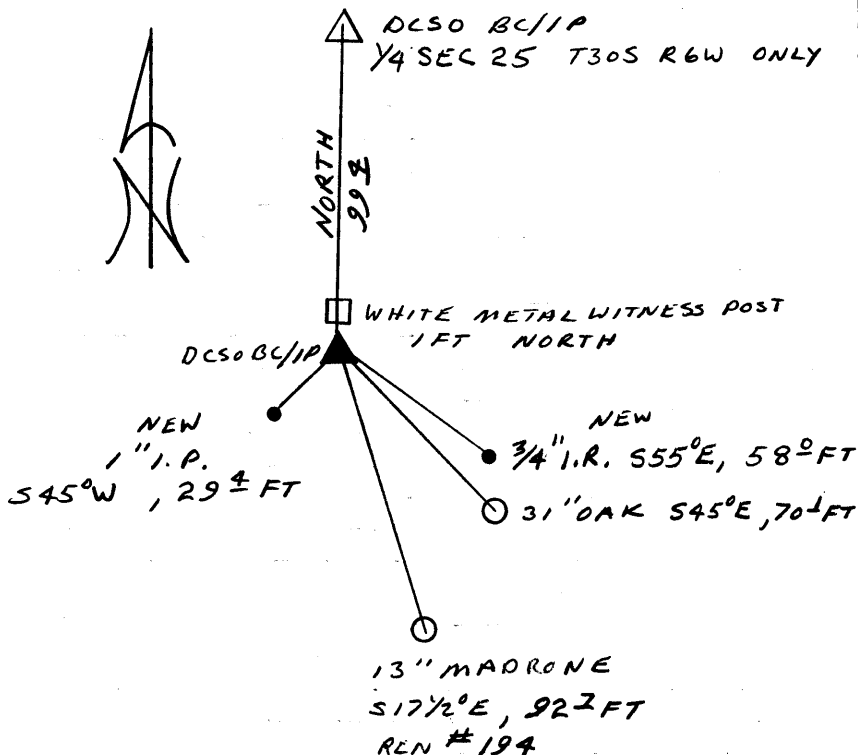 DCSO BC/IP
1/4 SEC 25 T30S R6W ONLY
NORTH
99 4
WHITE METAL WITNESS POST
1 FT NORTH
DCSO BC/IP
NEW
1" I.P.
S45°W, 29 4 FT
NEW
3/4" I.R. S55°E, 58 0 FT
31" OAK S45°E, 70 1 FT
13" MADRONE
S17 1/2°E, 92 7 FT
REN # 194